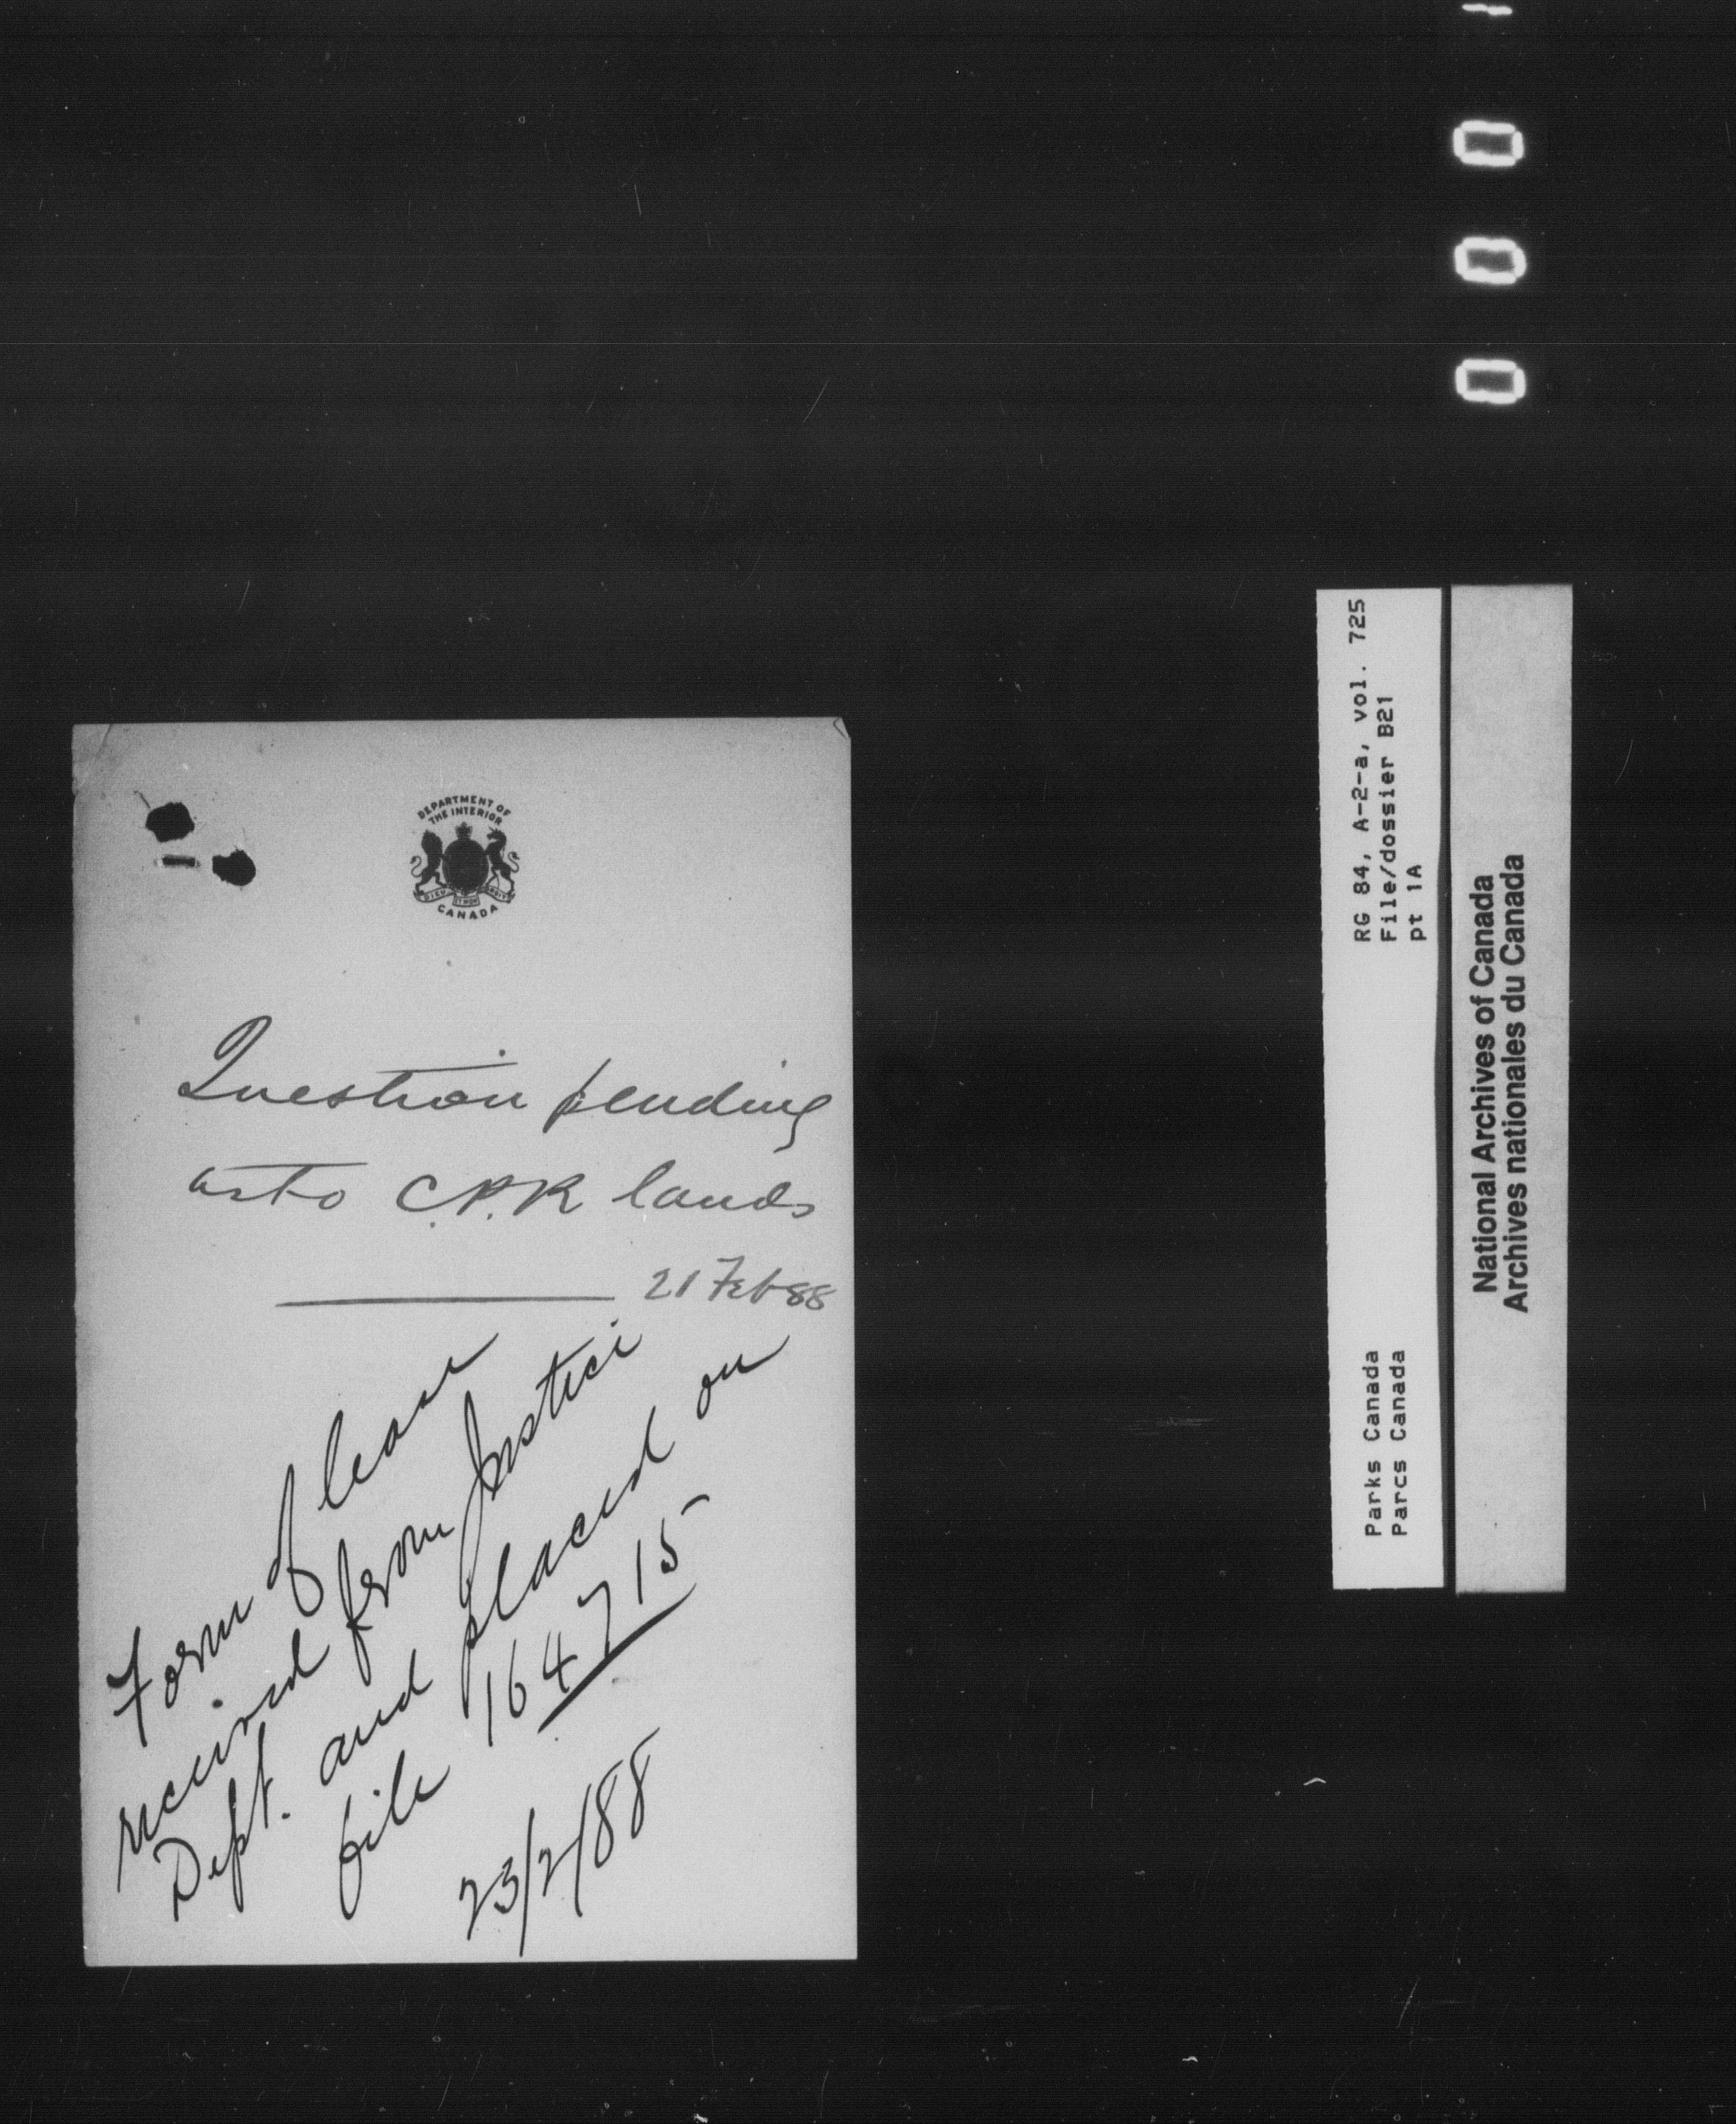 DEPARTMENT OF
THE INTERIOR
CANADA
Question pending
as to C.P.R lands
21 Feb 88
Form of lease
received from Justice
Dept. and placed on
file 164715
23/2/88
RG 84, A-2-a, vol. 725
File/dossier B21
pt 1A
Parks Canada
Parcs Canada
National Archives of Canada
Archives nationales du Canada
000